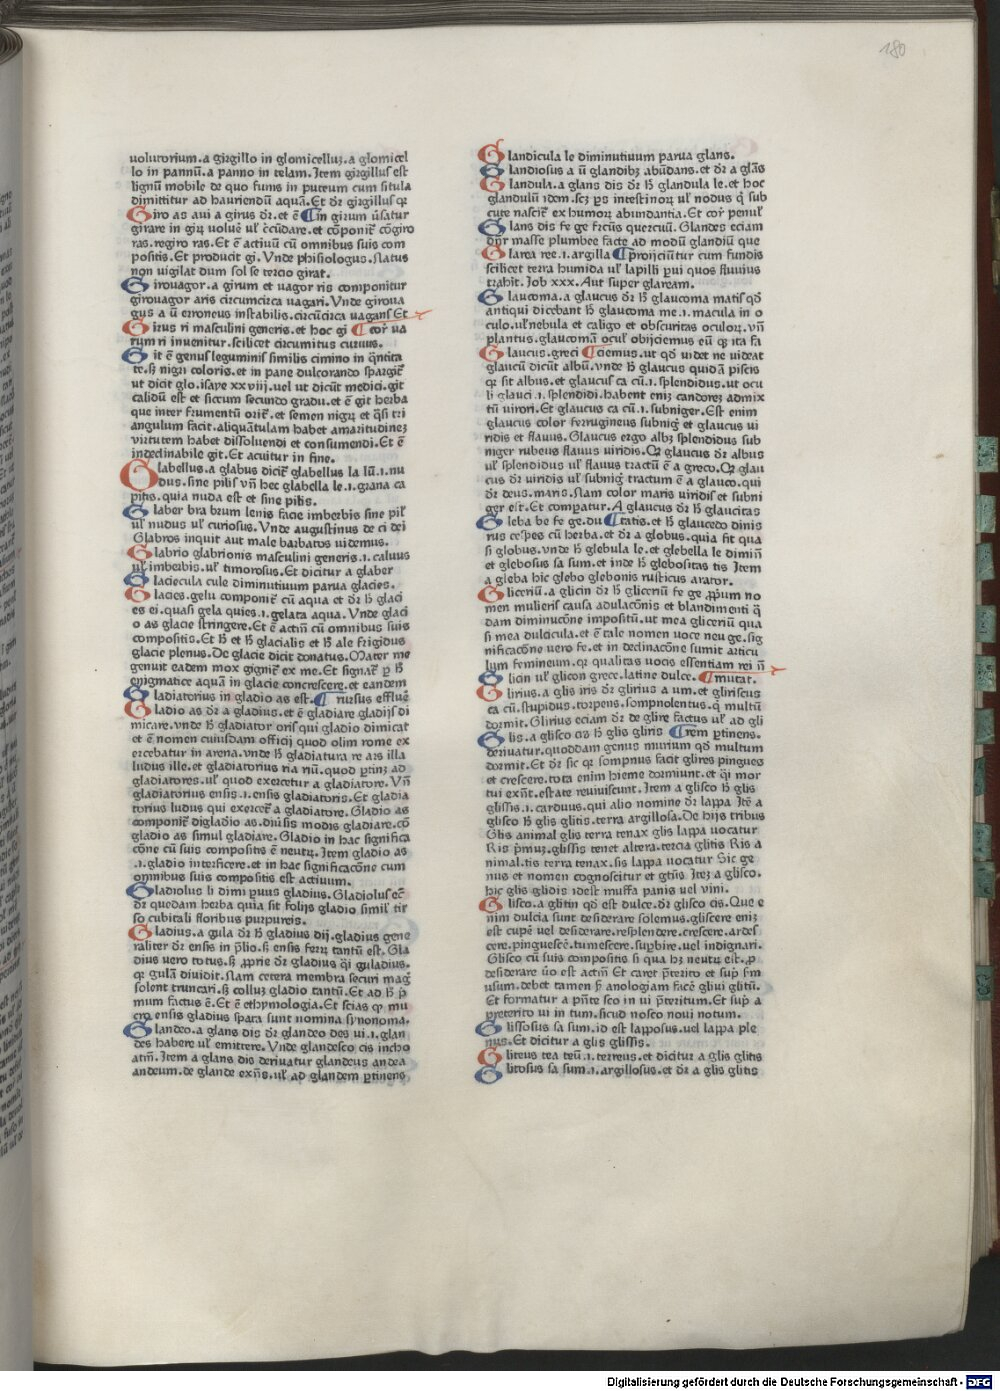 180
uolutorium.a girgillo in glomicelluz.a glomicel
lo in pannū.a panno in telam.Item girgillus est
lignū mobile de quo funis in puteum cum situla
dimittitur ad hauriendū aquā.Et dr̄ girgillus qr
Giro as aui a girus dr̄.et ē ¶in girum ūsatur
girare in girꝝ uoluē ul' cc̄udare.et cōponit̄ cōgiro
ras.regiro ras.Et ē actiuū cū omnibus suis com
positis.Et producit gi.Vnde phisiologus.Natus
non uigilat dum sol se tercio girat.
Girouagor.a girum et uagor ris componitur
girouagor aris circumcirca uagari.Vnde giroua
gus a ū erroneus instabilis.circūcirca uagans Et
Girus ri masculini generis.et hoc gi ¶cor̄ ua
rum ri inuenitur.scilicet circumitus curuus.
Git ē genus leguminis similis cimino in q̄ntita
te.sꝫ nigri coloris.et in pane dulcorando spargit̄
ut dicit glo.isaye xxviij.uel ut dicūt medici.git
calidū est et siccum secundo gradu.et ē git herba
que inter frumentū orit̄.et semen nigrꝝ et q̄si tri
angulum facit.aliquātulam habet amaritudinez
virtutem habet dissoluendi et consumendi.Et ē
indeclinabile git.Et acuitur in fine.
Glabellus.a glabus dicit̄ glabellus la lū.i.nu
dus.sine pilis vn̄ hec glabella le.i.grana ca
pitis.quia nuda est et sine pilis.
Glaber bra brum lenis facie imberbis sine pil'
ul' nudus ul' curiosus.Vnde augustinus de ci dei
Glabros inquit aut male barbatos uidemus.
Glabrio glabrionis masculini generis.i.caluus
ul' imberbis.ul' timorosus.Et dicitur a glaber
Glaciecula cule diminutiuum parua glacies.
Glacies.gelu componit̄ cū aqua et dr̄ hꝫ glaci
es ei.quasi gela quies.i.gelata aqua.Vnde glaci
o as glacie stringere.Et ē actiū cū omnibus suis
compositis.Et hꝫ et hꝫ glacialis et hꝫ ale frigidus
glacie plenus.De glacie dicit donatus.Mater me
genuit eadem mox gignit̄ ex me.Et signat̄ ꝑ hꝫ
enigmatice aquā in glacie concrescere.et eandem
Gladiatorius in gladio as est.¶ rursus effluē
Gladio as dr̄ a gladius.et ē gladiare gladijs di
micare.vnde hꝫ gladiator oris qui gladio dimicat
et ē nomen cuiusdam officij quod olim rome ex
ercebatur in arena.vnde hꝫ gladiatura re ars illa
ludus ille.et gladiatorius ria riū.quod ꝑtinꝫ ad
gladiatores.ul' quod exercetur a gladiatore.Vn̄
gladiatorius ensis.i.ensis gladiatoris.Et gladia
torius ludus qui exercet̄ a gladiatore.Gladio as
componit̄ digladio as.diūsis modis gladiare.cō
gladio as simul gladiare.Gladio in hac significa
cōne cū suis compositis ē neutꝝ.Item gladio as
.i.gladio interficere.et in hac significacōne cum
omnibus suis compositis est actiuum.
Gladiolus li dimi puus gladius.Gladiolus ec̄
dr̄ quedam herba quia sit folijs gladio simil' tir
so cubitali floribus purpureis.
Gladius.a gula dr̄ hꝫ gladius dij.gladius gene
raliter dr̄ ensis in p̄lio.sꝫ ensis ferꝝ tantū est.Gla
dius uero totus.sꝫ ꝓprie dr̄ gladius q̄i guladius.
qr gulā diuidit.Nam cetera membra securi maḡ
solent truncari.sꝫ colluꝫ gladio tantū.Et ad hꝫ p̄
mum factus ē.Et ē ethymologia.Et scias qꝫ mu
cro ensis gladius spata sunt nomina synonoma.
Glandeo.a glans dis dr̄ glandeo des ui.i.glan
des habere ul' emittere.Vnde glandesco cis incho
atiū.Item a glans dis deriuatur glandeus andea
andeum.de glande exn̄s.ul' ad glandem ꝑtinens
Glandicula le diminutiuum parua glans.
Glandiosus a ū glandibꝫ abūdans.et dr̄ a glās
Glandula.a glans dis dr̄ hꝫ glandula le.et hoc
glandulū idem.scꝫ ꝑs intestinoꝝ ul' nodus q̄ sub
cute nascit̄ ex humoꝝ abundantia.Et cor̄ penul'
Glans dis fe ge fructus quercuū.Glandes eciam
dn̄r masse plumbee facte ad modū glandiū que
Glarea ree.i.argilla ¶proijciūtur cum fundis
scilicet terra humida ul' lapilli ꝑui quos fluuius
trahit.Job xxx.Aut super glaream.
Glaucoma.a glaucus dr̄ hꝫ glaucoma matis qd̄
antiqui dicebant hꝫ glaucoma me.i.macula in o
culo.ul'nebula et caligo et obscuritas oculoꝝ.vn̄
plantus.glaucomā ocul' obijciemus eū qꝫ ita fa
Glaucus.greci ¶ciemus.ut qd̄ uidet ne uideat
glaucū dicūt albū.vnde hꝫ glaucus quidā piscis
qr sit albus.et glaucus ca cū.i.splendidus.ut ocu
li glauci.i.splendidi.habent enim candoreꝫ admix
tū uirori.Et glaucus ca cū.i.subniger.Est enim
glaucus color ferrugineus subniḡ et glaucus ui
ridis et flauus.Glaucus ergo albꝫ splendidus sub
niger rubeus flauus uiridis.Qꝫ glaucus dr̄ albus
ul' splendidus ul' flauus tractū ē a greco.Qꝫ glau
cus dr̄ uiridis ul' subniḡ tractum ē a glauco.qui
dr̄ deus.maris.Nam color maris uiridis et subni
ger est.Et compatur.A glaucus dr̄ hꝫ glaucitas
Gleba be fe ge.du ¶tatis.et hꝫ glaucedo dinis
rus cespes cū herba.et dr̄ a globus.quia sit qua
si globus.vnde hꝫ glebula le.et glebella le dimin̄
et glebosus sa sum.et inde hꝫ glebositas tis Item
a gleba hic glebo glebonis rusticus arator.
Gliceriū.a glicin dr̄ hꝫ gliceriū fe ge ꝓprium no
men mulieris causa adulacōnis et blandimenti q̄
dam diminucōne impositū.ut mea gliceriū qua
si mea dulcicula.et ē tale nomen uoce neu ge.sig
nificacōne uero fe.et in declinacōne sumit articu
lum femineum.qr qualitas uocis essentiam rei n̄
Glicin ul' glicon grece.latine dulce. ¶mutat.
Glirius.a glis iris dr̄ glirius a um.et gliriscus
ca cū.stupidus.torpens.sompnolentus.q̄ multū
dormit.Glirius eciam dr̄ de glire factus ul' ad gli
Glis.a glisco cis hꝫ glis gliris ¶rem ꝑtinens.
deriuatur.quoddam genus murium qd̄ multum
dormit.Et dr̄ sic qr sompnus facit glires pingues
et crescere.tota enim hieme dormiunt.et q̄i mor
tui exn̄t.estate reuiuiscunt.Item a glisco hꝫ glis
glissis.i.carduus.qui alio nomine dr̄ lappa Itē a
glisco hꝫ glis glitis.terra argillosa.De hijs tribus
Glis animal glis terra tenax glis lappa uocatur
Ris p̄muꝫ.glissis tenet altera.tercia glitis Ris a
nimal.tis terra tenax.sis lappa uocatur Sic ge
nus et nomen cognoscitur et gtūs.Iteꝫ a glisco.
hic glis glidis idest muffa panis uel vini.
Glisco.a glitin qd̄ est dulce.dr̄ glisco cis.Que e
nim dulcia sunt desiderare solemus.gliscere eniꝫ
est cupē uel desiderare.resplendere.crescere.ardes
cere.pinguescē.tumescere.suꝑbire.uel indignari.
Glisco cū suis compositis si qua hꝫ neutꝝ est.ꝓ
desiderare ūo est actiū Et caret p̄terito et sup̄ sm
usum.debet tamen ꝑ anologiam facē gliui glitū.
Et formatur a pn̄te sco in ui p̄teritum.Et sup̄ a
preterito ui in tum.sicud nosco noui notum.
Glissosus sa sum.id est lapposus.uel lappa ple
nus.Et dicitur a glis glissis.
Gliteus tea teū.i.terreus.et dicitur a glis glitis
Glitosus sa sum.i.argillosus.et dr̄ a glis glitis
Digitalisierung gefördert durch die Deutsche Forschungsgemeinschaft - DFG